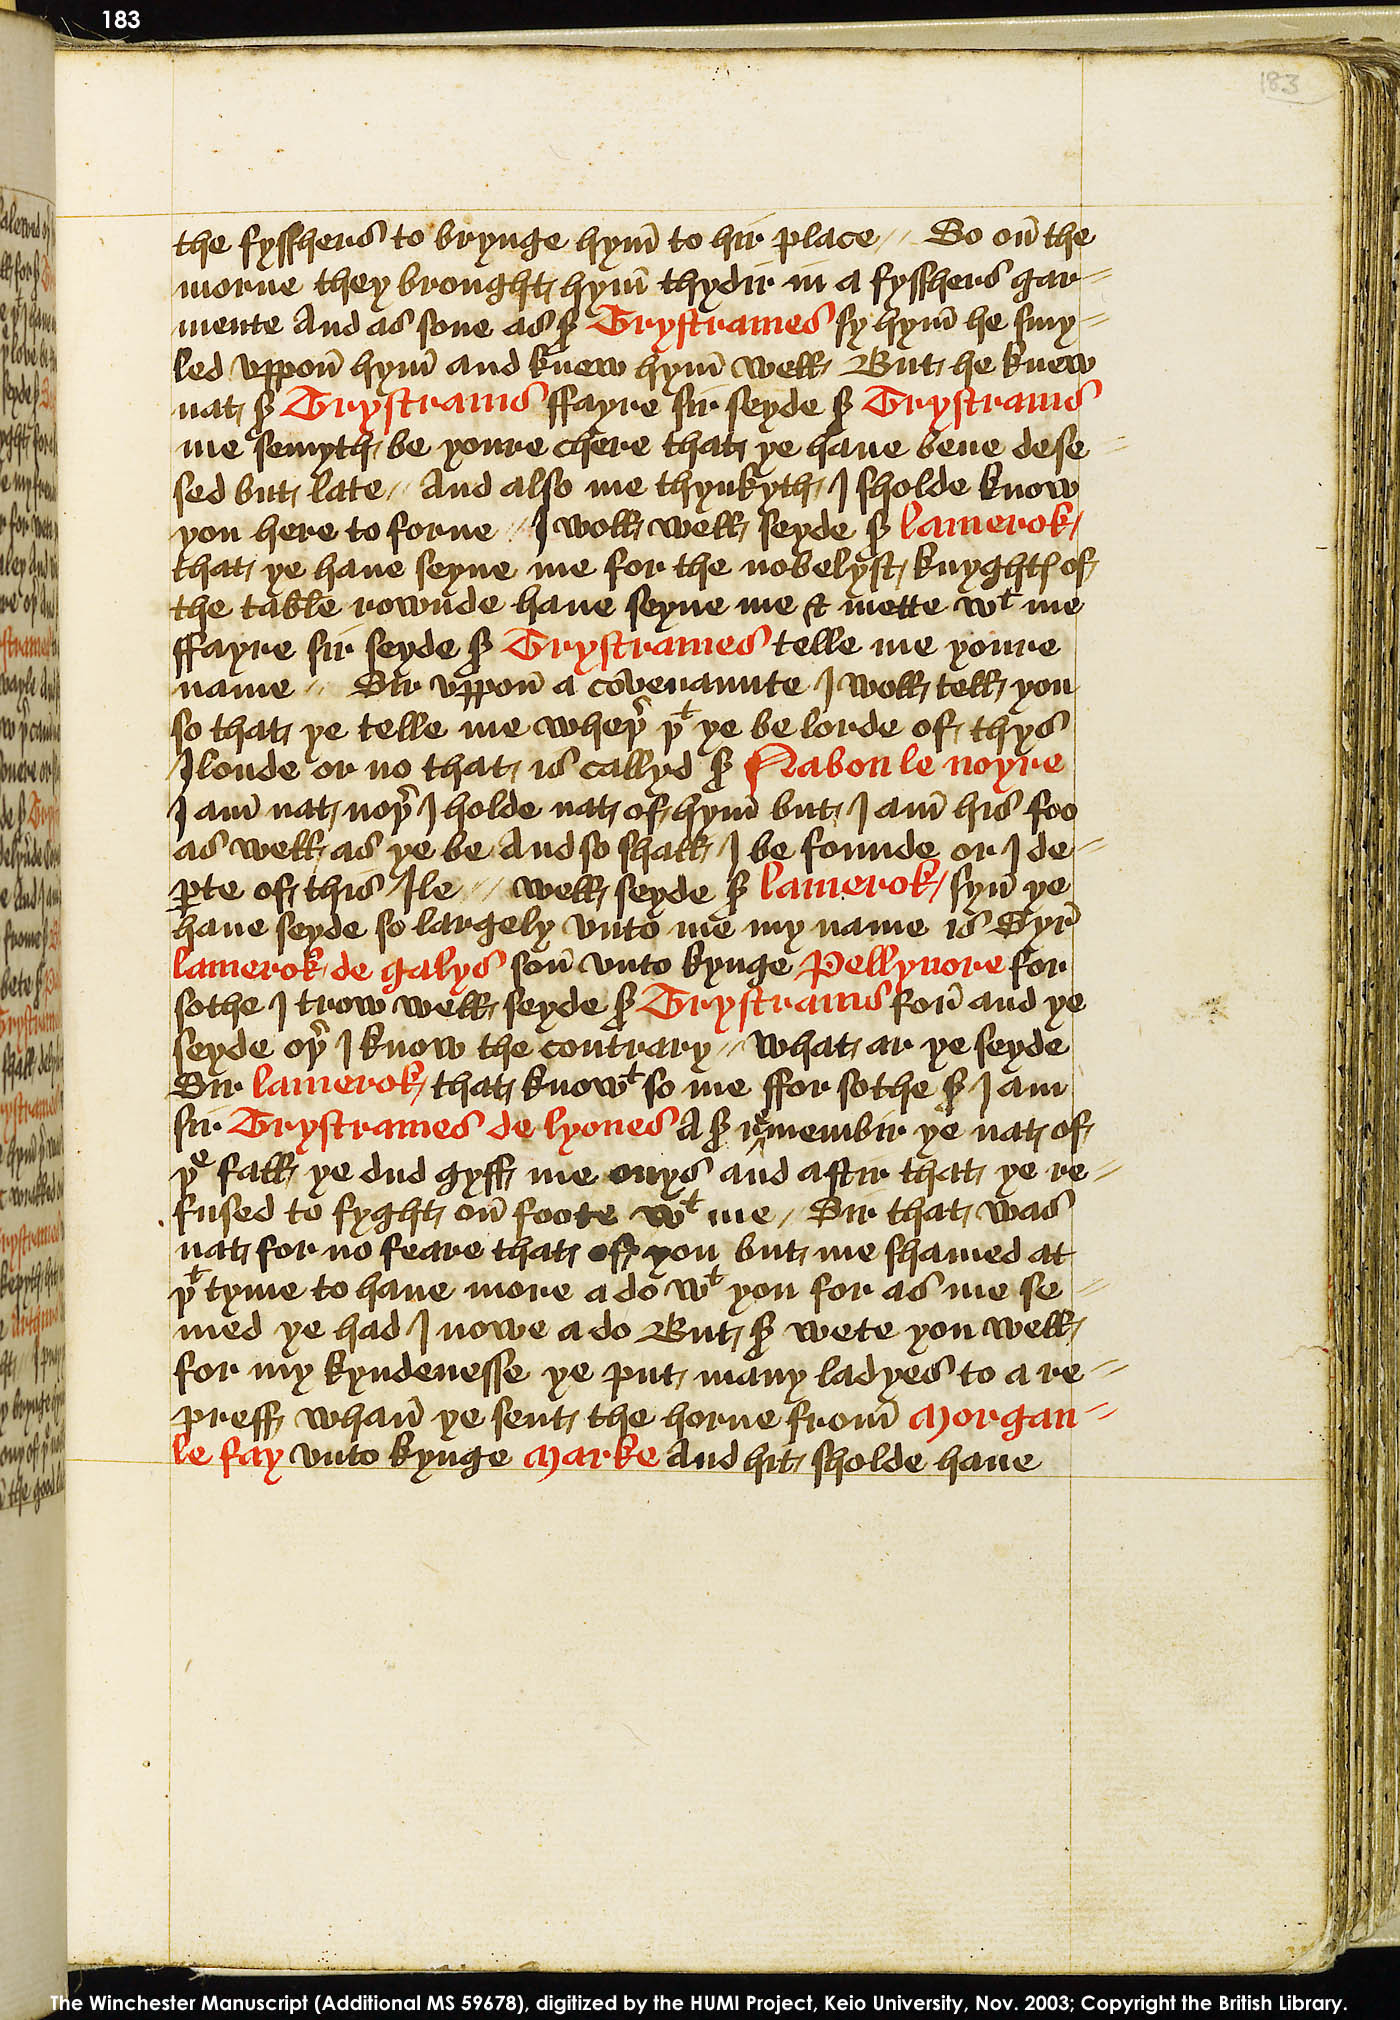 183
183
the fysshers to brynge hym̄ to hir place // So oūn the
morne they brought hym̄ thydir in a fysshers gar=
mente And as sone as sr Trystrames sy hym̄ he smy=
led vppon̄ hym̄ and knew hym̄ well But he knew
nat sr Trystrams ffayre sir seyde sr Trystrams
me semyth be youre chere that ye haue bene dese=
sed but late // And also me thynkyth I sholde know
you here to forne // I woll well seyde sr lamerok
that ye haue seyne me for the nobelyst knyghtꝭ of
the table rownde haue seyne me & mette wt me
ffayre sir seyde sr Trystrames telle me youre
name // Sir vppon̄ a cōvenaunte I woll tell you
so that ye telle me wheþr þt ye be lorde of thys
Ilonde or no that is callyd sr Nabon le noyre
I am̄ nat noþr I holde nat of hym̄ but I am̄ his foo
as well as ye be And so shall I be founde or I de=
ꝑte of this Ile // well seyde sr lamerok syn̄ ye
haue seyde so largely vnto me my name is Syr̄
lamerok de galys son̄ vnto kynge Pellynore for
sothe I trow well seyde sr Trystrams for̄ and ye
seyde oþr I know the contrary // what ar ye seyde
Sir lamerok that knowt so me ffor sothe sr I am
sir Trystrames de lyones A sr remembir ye nat of
þe fall ye dud gyff me onys and aftir that ye re=
fused to fyght on̄ foote wt me / Sir that was
nat for no feare that of you but me shamed at
þt tyme to haue more a do wt you for as me se=
med ye had I nowe a do But sr wete you well
for my kyndenesse ye put many ladyes to a re=
preff whan̄ ye sent the horne from̄ Morgan=
le fay vnto kynge Marke And hit sholde haue
The Winchester Manuscript (Additional MS 59678), digitized by the HUMI Project, Keio University, Nov. 2003; Copyright the British Library.